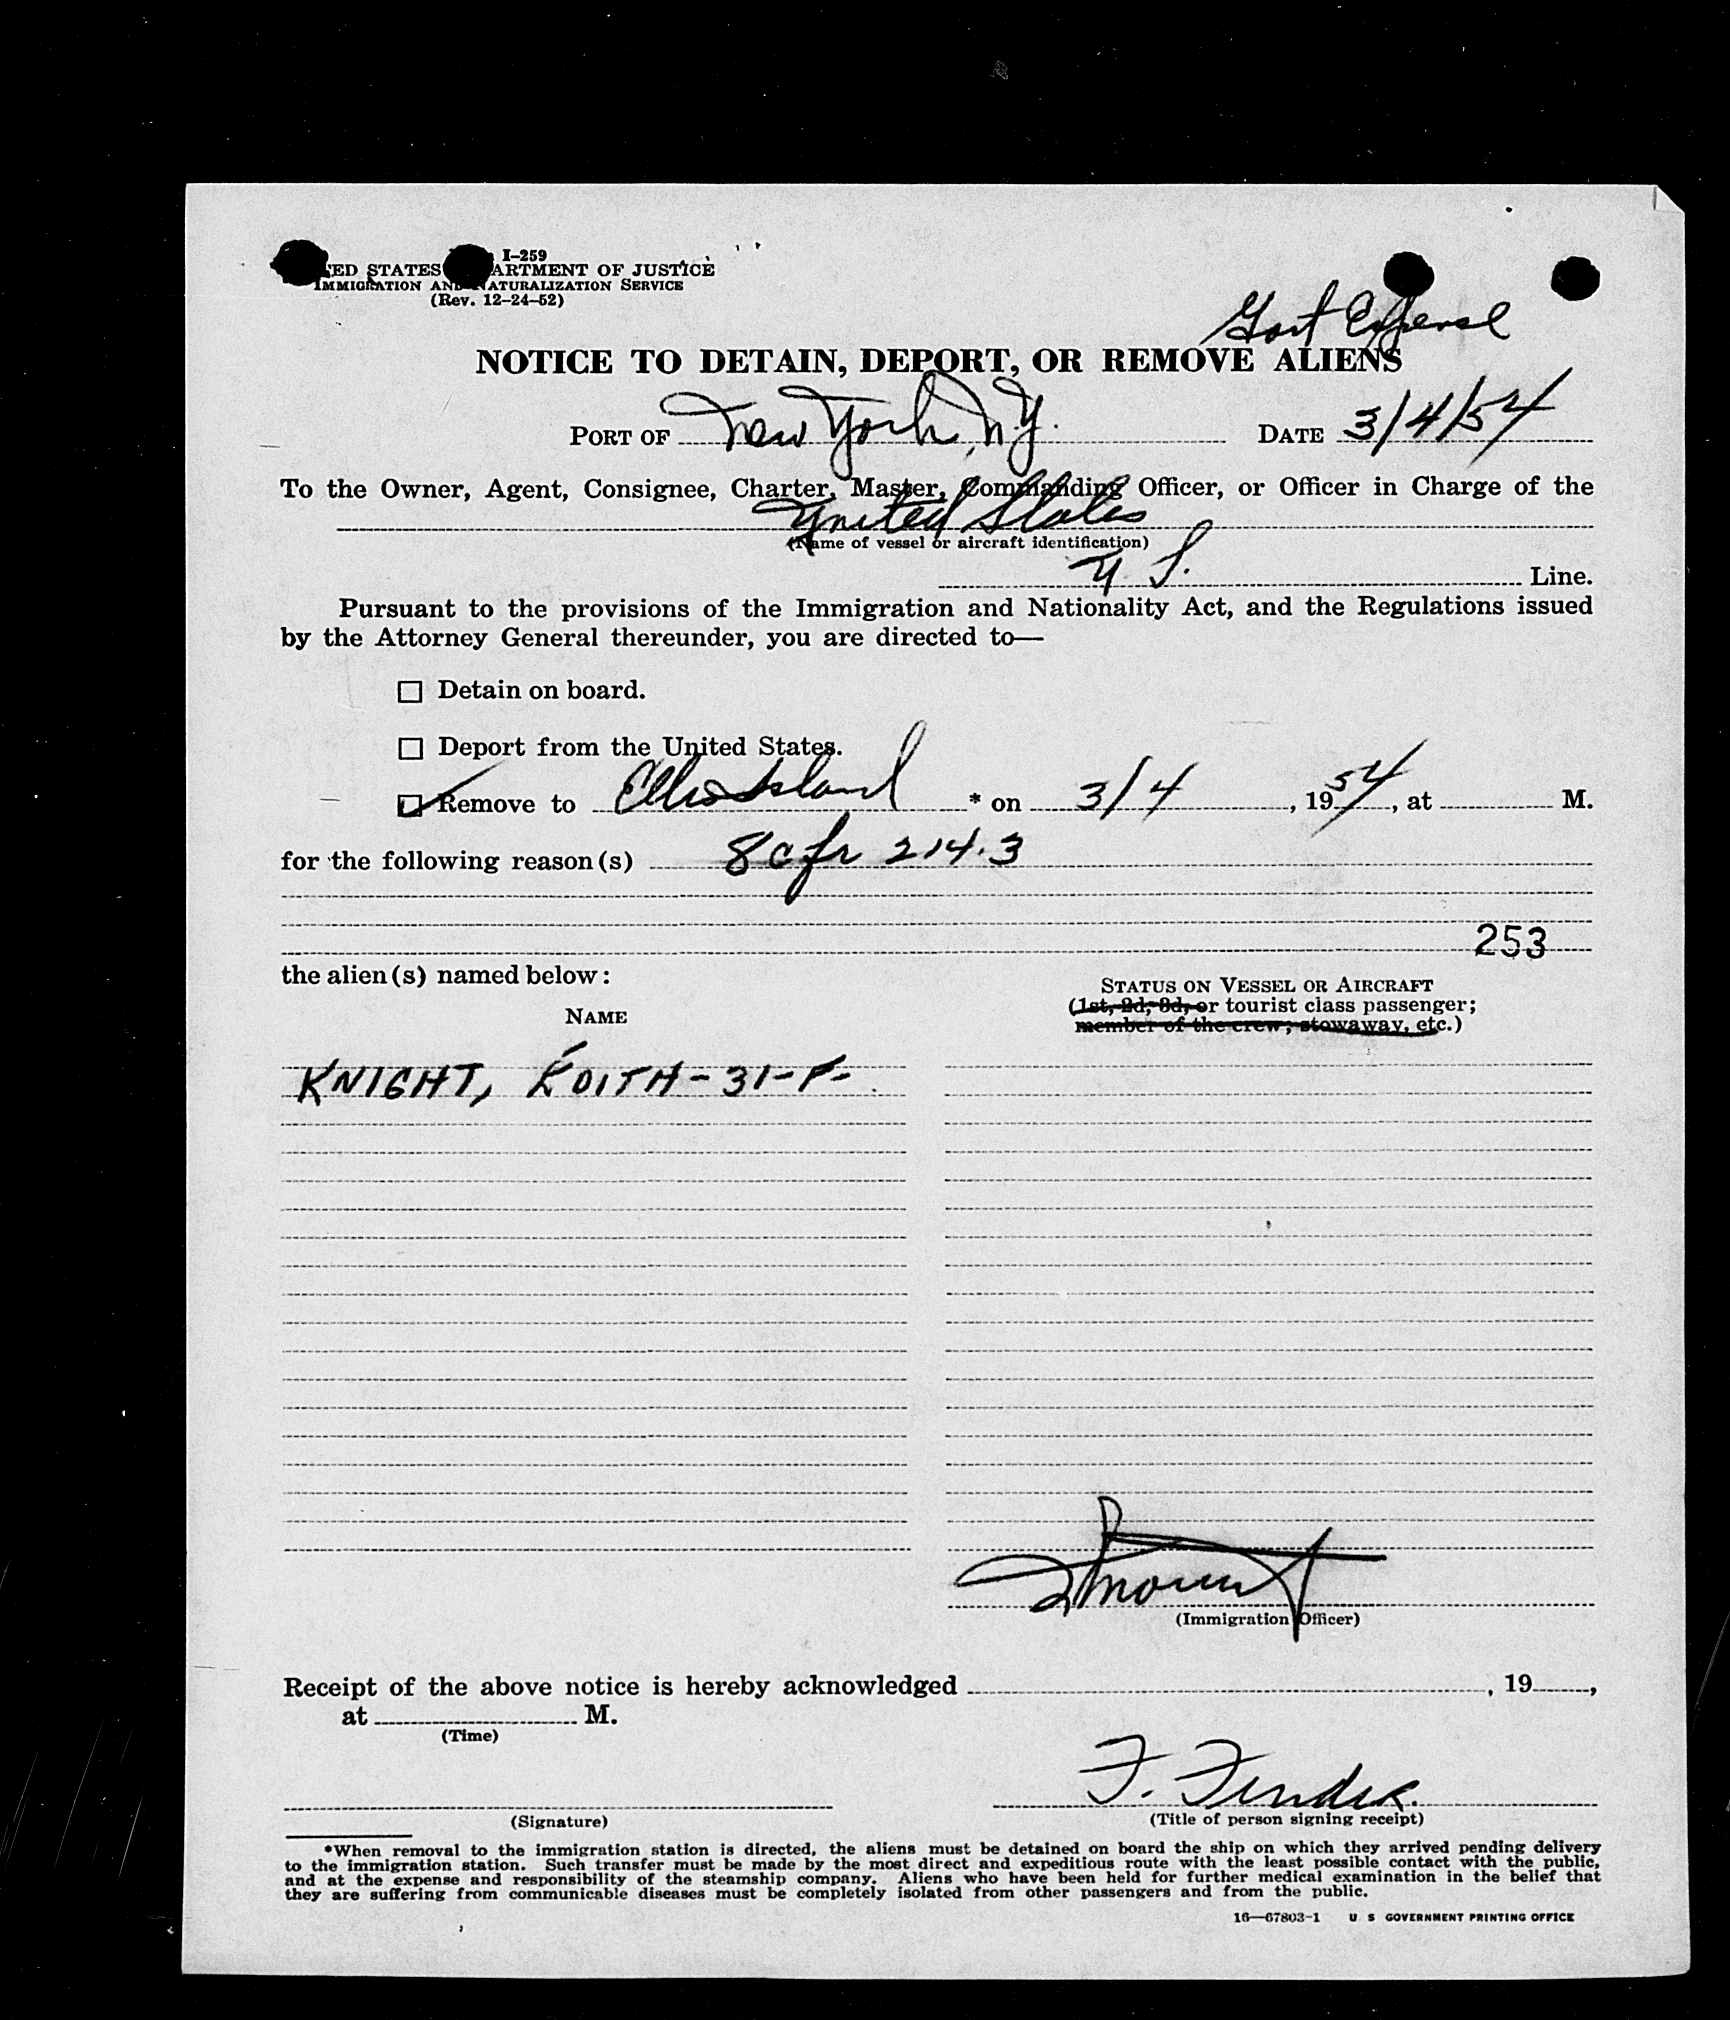 I-259
ED STATES ARTMENT OF JUSTICE
IMMIGRATION AND NATURALIZATION SERVICE
(Rev. 12-24-52)
Govt Expense
NOTICE TO DETAIN, DEPORT, OR REMOVE ALIENS
PORT OF New York, N.Y. DATE 3/4/54
To the Owner, Agent, Consignee, Charter, Master, Commanding Officer, or Officer in Charge of the
United States
(Name of vessel or aircraft identification)
U. S. Line.
Pursuant to the provisions of the Immigration and Nationality Act, and the Regulations issued
by the Attorney General thereunder, you are directed to—
☐ Detain on board.
☐ Deport from the United States.
☑ Remove to Ellis Island * on 3/4, 1954, at M.
for the following reason(s) 8 cfr 214.3
253
the alien(s) named below:
STATUS ON VESSEL OR AIRCRAFT
(1st, 2d, 3d, or tourist class passenger;
member of the crew; stowaway, etc.)
NAME
KNIGHT, EDITH - 31 - F -
(Immigration Officer)
Receipt of the above notice is hereby acknowledged , 19 ,
at M.
(Time)
F.
(Signature) (Title of person signing receipt)
*When removal to the immigration station is directed, the aliens must be detained on board the ship on which they arrived pending delivery
to the immigration station. Such transfer must be made by the most direct and expeditious route with the least possible contact with the public,
and at the expense and responsibility of the steamship company. Aliens who have been held for further medical examination in the belief that
they are suffering from communicable diseases must be completely isolated from other passengers and from the public.
16—67803-1 U S GOVERNMENT PRINTING OFFICE